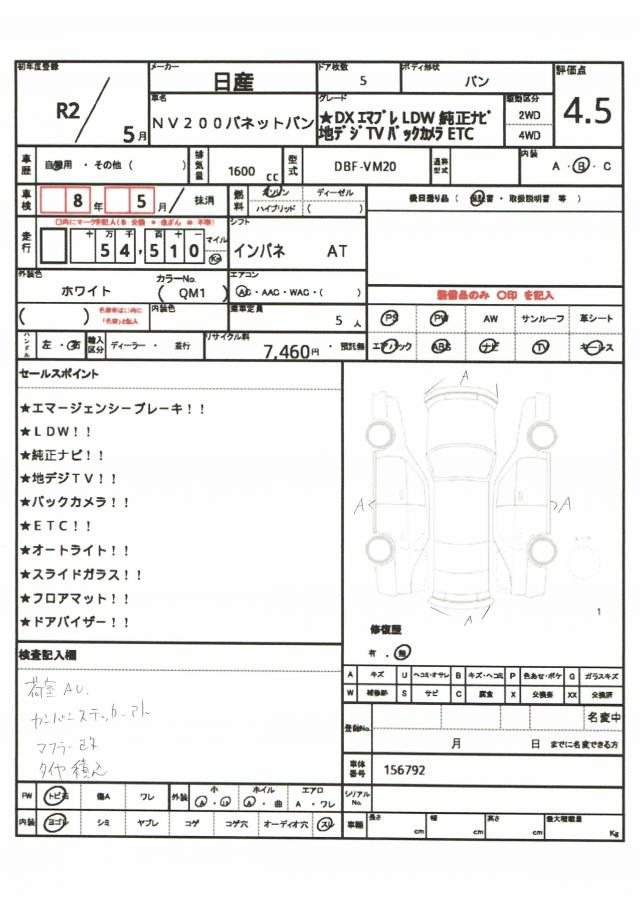 初年度登録 メーカー ドア枚数 ボディ形状 評価点
R2/5月 日産 5 バン 4.5
車名 グレード 駆動区分
NV200バネットバン ★DX エマブレ LDW 純正ナビ 2WD
地デジ TV バックカメラ ETC 4WD
車歴 自家用 ・ その他 ( ) 排気量 1600 cc 型式 DBF-VM20 通称型式 内装 A ・ B ・ C
車検 8 年 5 月 / 抹消 燃料 ガソリン ディーゼル ハイブリッド ( ) 後日送り品 ( 保証書 ・ 取扱説明書 等 )
□内にマークを記入($ 交換 * 改ざん # 不明)
走行 十 万 千 百 十 一
54,510 マイル Km
シフト
インパネ AT
外装色 カラーNo. エアコン
ホワイト ( QM1 ) AC ・ AAC ・ WAC ・ ( )
装備品のみ 〇印 を記入
( ) 色替車は□内に(色替)と記入 内装色 乗車定員 5 人
PS PW AW サンルーフ 革シート
ハンドル 左 ・ 右 輸入区分 ディーラー ・ 並行 リサイクル料 7,460円 ・ 預託無
エアバック ABS ナビ TV キーレス
セールスポイント
★エマージェンシーブレーキ!!
★LDW!!
★純正ナビ!!
★地デジTV!!
★バックカメラ!!
★ETC!!
★オートライト!!
★スライドガラス!!
★フロアマット!!
★ドアバイザー!!
A
A
A
A
1
修復歴
有 ・ 無
検査記入欄
荷室 AU.
カンバンステッカーアト
マフラー改
タイヤ積込
A キズ U ヘコミ・オサレ B キズ・ヘコミ P 色あせ・ボケ G ガラスキズ
W 補修跡 S サビ C 腐食 X 交換要 XX 交換済
登録No. 名変中
月 日 までに名変できる方
車体番号 156792
シリアルNo.
FW トビ石 傷A ワレ 外装 小 A ・ U ホイル A ・ 曲 エアロ A ・ ワレ
内装 ヨゴレ シミ ヤブレ コゲ コゲ穴 オーディオ穴 スレ
車輛 長さ cm 幅 cm 高さ cm 最大積載量 Kg